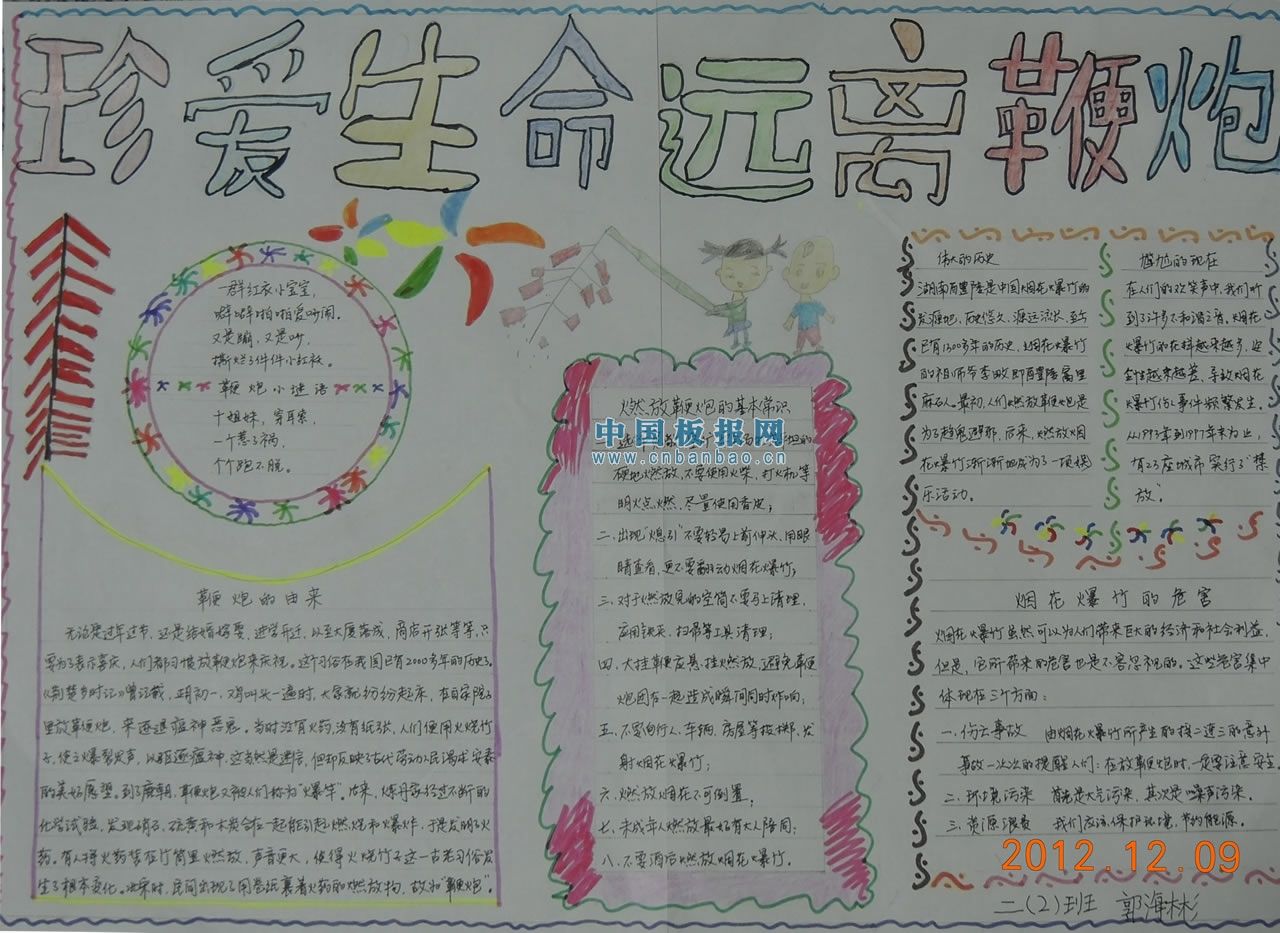 珍爱生命远离鞭炮
一群红衣小宝宝,
噼噼啪啪爱吵闹。
又是蹦,又是吵,
撕烂了件件小红袄。
鞭炮小谜语
十姐妹,穿耳索,
一个惹了祸,
个个跑不脱。
鞭炮的由来
无论是过年过节,还是结婚嫁娶,进学升迁,以至大厦落成,商店开张等等,只
要为了表示喜庆,人们都习惯放鞭炮来庆祝。这个习俗在我国已有2000多年的历史了。
《荆楚岁时记》曾记载,正月初一,鸡叫头一遍时,大家就纷纷起床,在自家院子
里放鞭炮,来逐退瘟神恶鬼。当时没有火药,没有纸张,人们便用火烧竹
子,使之爆裂发声,以驱逐瘟神。这当然是迷信,但却反映古代劳动人民渴求安泰
的美好愿望。到了唐朝,鞭炮又被人们称为“爆竿”。后来,炼丹家经过不断的
化学试验,发现硝石、硫黄和木炭合在一起能引起燃烧和爆炸,于是发明了火
药。有人将火药装在竹筒里燃放,声音更大,使得火烧竹子这一古老习俗发
生了根本变化。北宋时,民间出现了用卷纸裹着火药的燃放物,故为“鞭炮”。
燃放鞭炮的基本常识
中国板报网
www.cnbanbao.com
硬地燃放,不要使用火柴、打火机等
明火点燃,尽量使用香火;
二、出现“熄引”不要轻易上前伸头、用眼
睛查看,更不要翻动烟花爆竹;
三、对于燃放完的空筒不要马上清理,
应用铁夹、扫帚等工具清理;
四、大挂鞭应悬挂燃放,避免鞭
炮团在一起造成瞬间同时炸响;
五、不要向行人、车辆、房屋等投掷、发
射烟花爆竹;
六、燃放烟花不可倒置;
七、未成年人燃放最好有大人陪同;
八、不要酒后燃放烟花爆竹。
伟大的历史
湖南浏醴陵是中国烟花爆竹的
发源地,历史悠久,源远流长,至今
已有1300多年的历史,烟花爆竹
的祖师爷李畋即醴陵富里
麻石人。最初,人们燃放鞭炮是
为了趋鬼避邪,后来,燃放烟
花爆竹渐渐地成为了一项娱
乐活动。
尴尬的现在
在人们的欢笑声中,我们听
到了许多不和谐之音。烟花
爆竹的花样越来越多,安
全性越来越差,导致烟花
爆竹伤人事件频繁发生。
从1993年到1997年末为止,
有23座城市实行了“禁
放”。
烟花爆竹的危害
烟花爆竹虽然可以为人们带来巨大的经济和社会利益,
但是,它所带来的危害也是不容忽视的。这些危害集中
体现在三个方面:
一、伤亡事故 由烟花爆竹所产生的接二连三的意外
事故一次次的提醒人们:在放鞭炮时,一定要注意安全。
二、环境污染 首先是大气污染,其次是噪声污染。
三、资源浪费 我们应该保护环境,节约能源。
2012.12.09
二(2)班 郭海彬